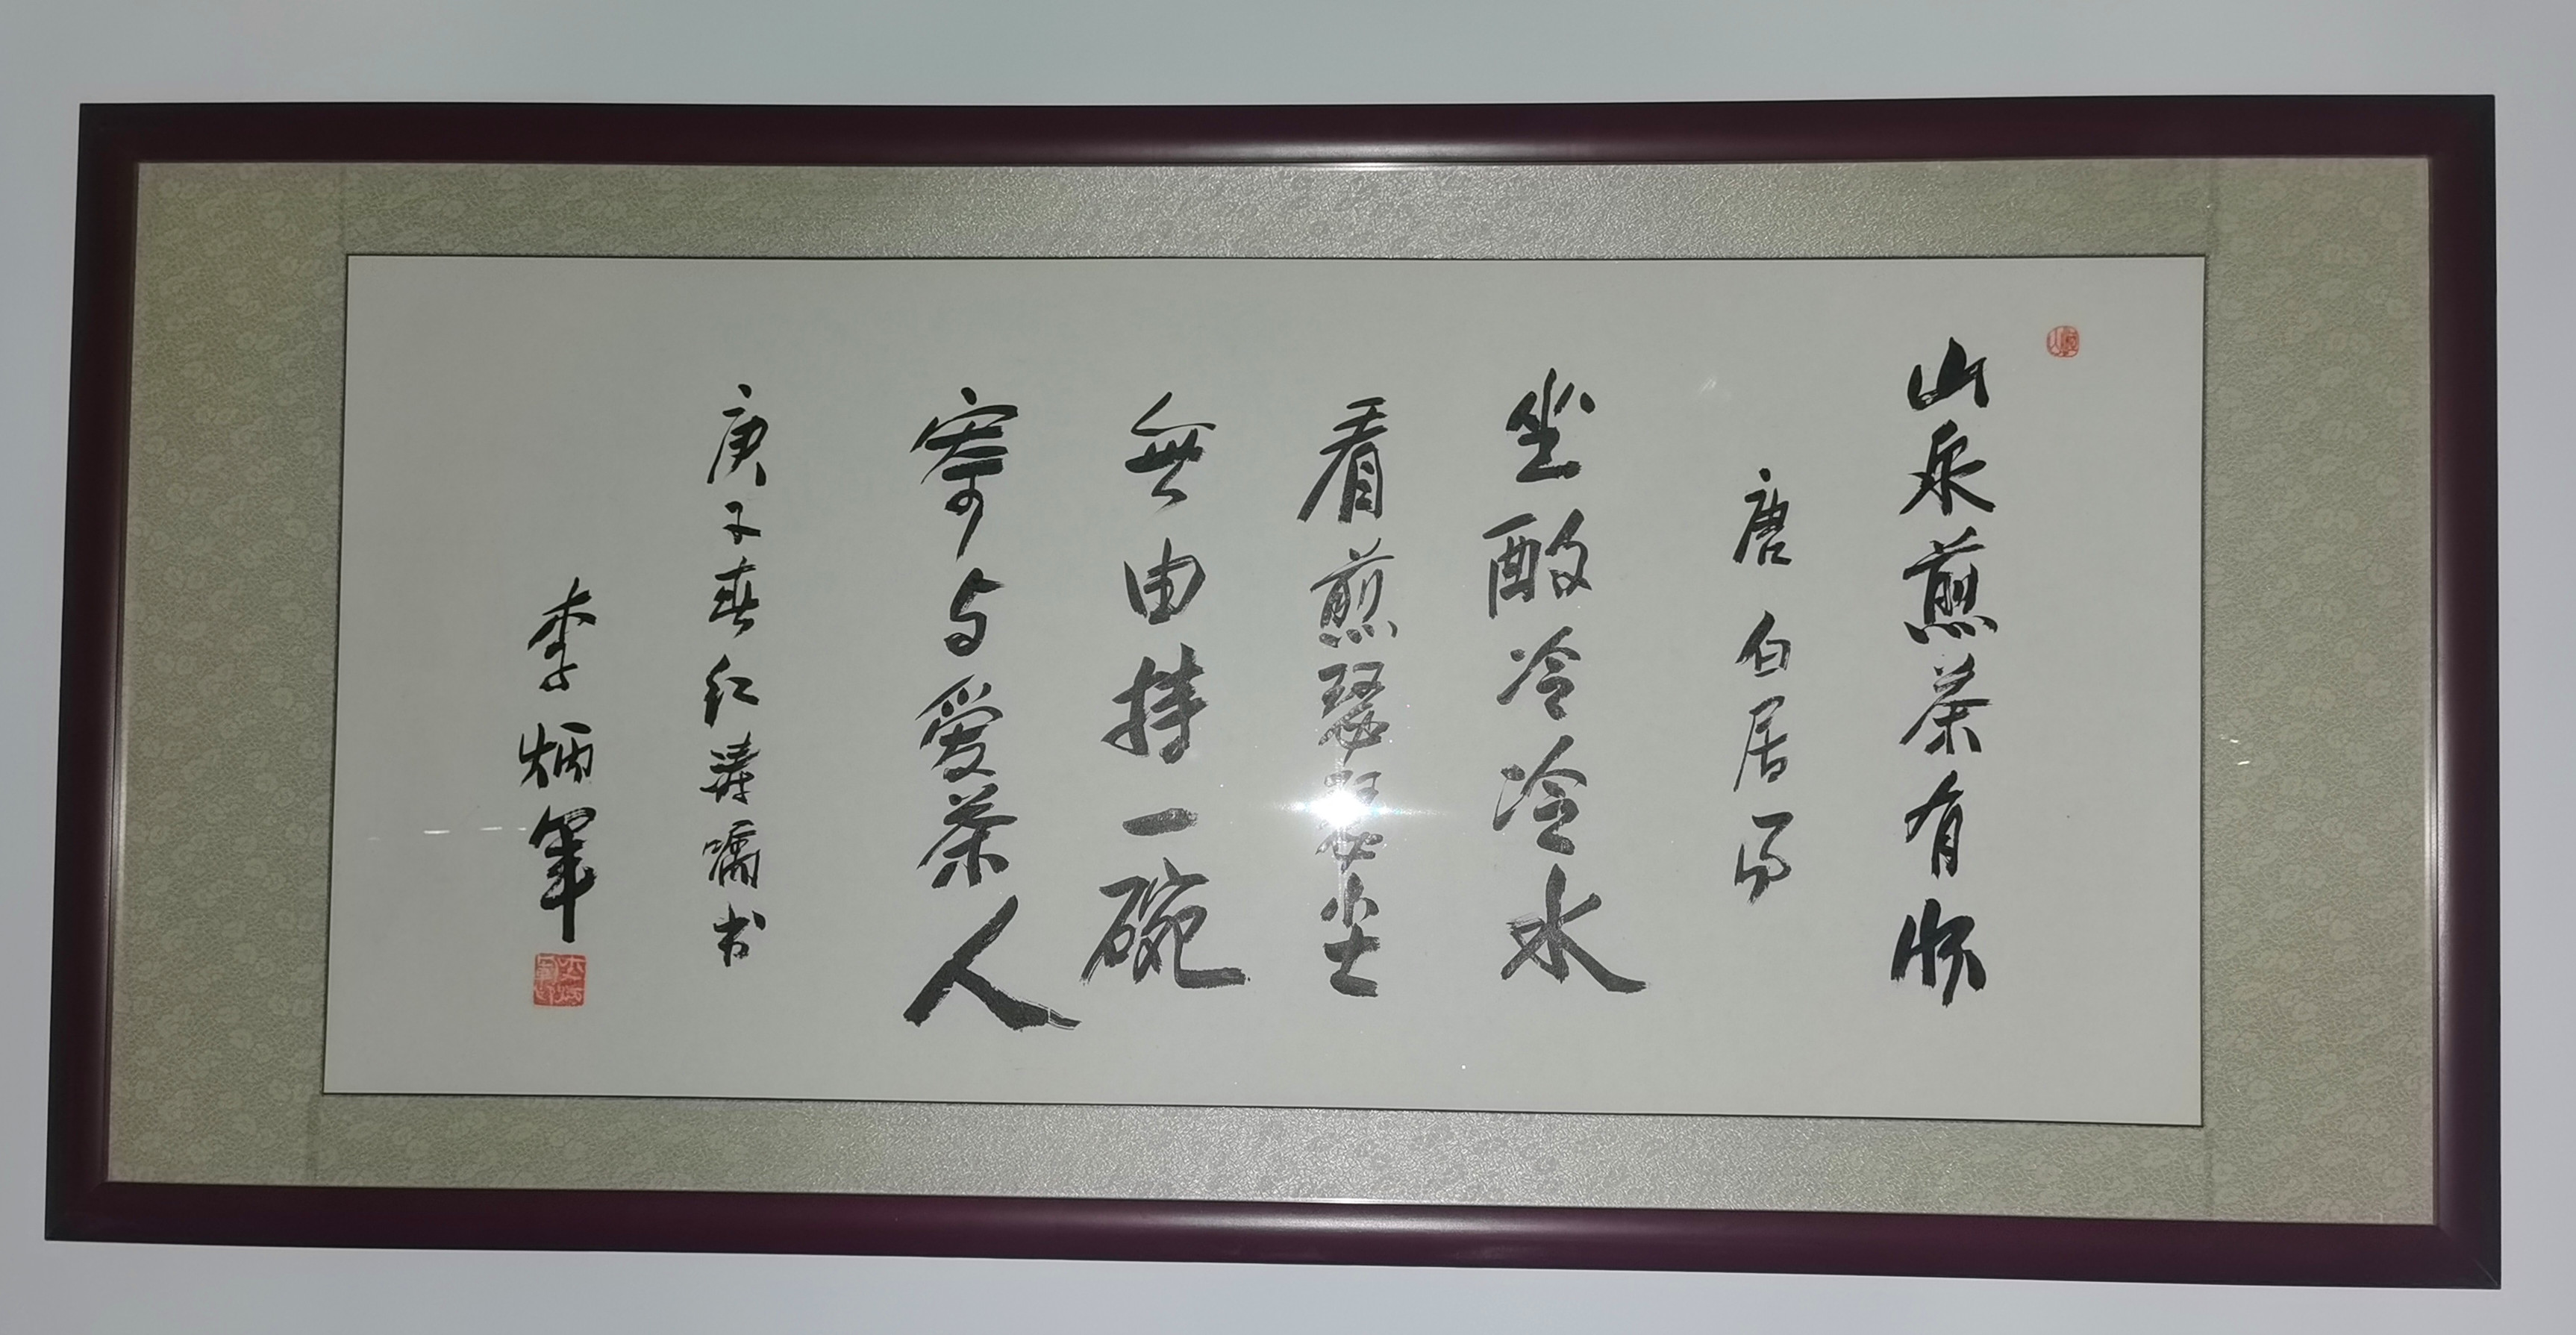 山泉煎茶有怀
唐 白居易
坐酌泠泠水
看煎瑟瑟尘
無由持一碗
寄与爱茶人
庚子春红涛嘱书
李炳軍